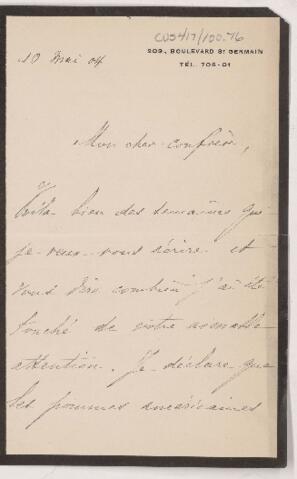 CUS417/100.76
209, BOULEVARD St GERMAIN
TÉL. 706-01
10 Mai 04
Mon cher confrère,
Voila bien des semaines que
je veux vous écrire et
vous dire combien j'ai été
touché de votre aimable
attention. Je déclare que
les pommes américaines